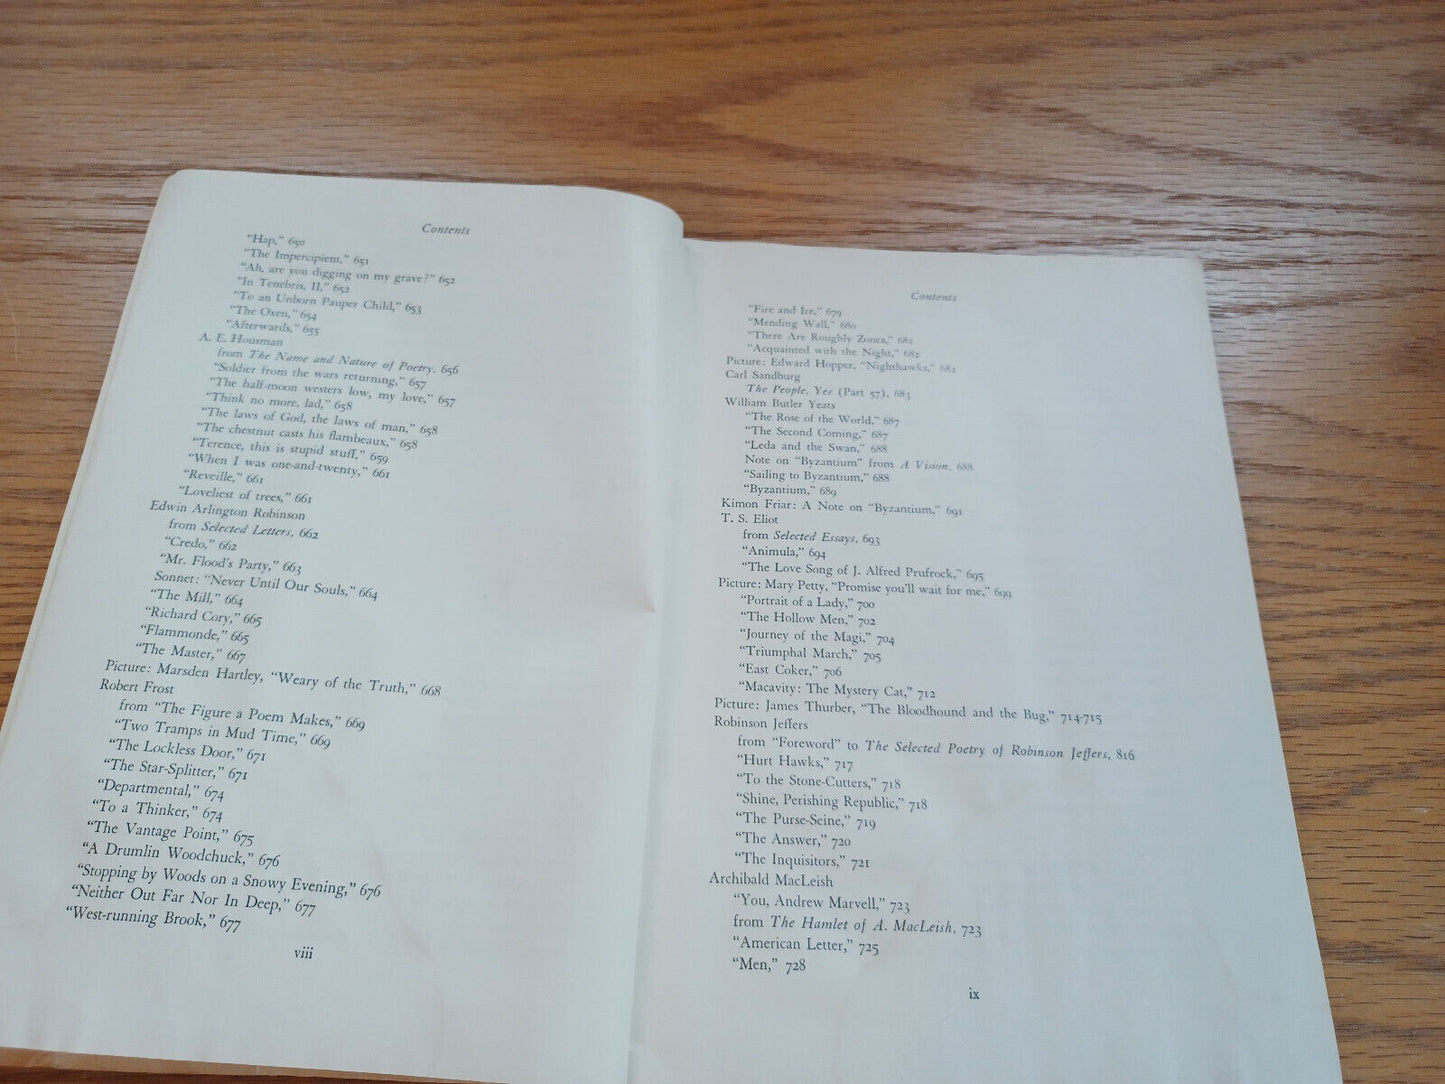 Contents
"Hap," 650
"The Impercipient," 651
"Ah, are you digging on my grave?" 652
"In Tenebris, II," 652
"To an Unborn Pauper Child," 653
"The Oxen," 654
"Afterwards," 655
A. E. Housman
from The Name and Nature of Poetry, 656
"Soldier from the wars returning," 657
"The half-moon westers low, my love," 657
"Think no more, lad," 658
"The laws of God, the laws of man," 658
"The chestnut casts his flambeaux," 658
"Terence, this is stupid stuff," 659
"When I was one-and-twenty," 661
"Reveille," 661
"Loveliest of trees," 661
Edwin Arlington Robinson
from Selected Letters, 662
"Credo," 662
"Mr. Flood's Party," 663
Sonnet: "Never Until Our Souls," 664
"The Mill," 664
"Richard Cory," 665
"Flammonde," 665
"The Master," 667
Picture: Marsden Hartley, "Weary of the Truth," 668
Robert Frost
from "The Figure a Poem Makes," 669
"Two Tramps in Mud Time," 669
"The Lockless Door," 671
"The Star-Splitter," 671
"Departmental," 674
"To a Thinker," 674
"The Vantage Point," 675
"A Drumlin Woodchuck," 676
"Stopping by Woods on a Snowy Evening," 676
"Neither Out Far Nor In Deep," 677
"West-running Brook," 677
viii
Contents
"Fire and Ice," 679
"Mending Wall," 680
"There Are Roughly Zones," 681
"Acquainted with the Night," 682
Picture: Edward Hopper, "Nighthawks," 682
Carl Sandburg
The People, Yes (Part 57), 683
William Butler Yeats
"The Rose of the World," 687
"The Second Coming," 687
"Leda and the Swan," 688
Note on "Byzantium" from A Vision, 688
"Sailing to Byzantium," 688
"Byzantium," 689
Kimon Friar: A Note on "Byzantium," 691
T. S. Eliot
from Selected Essays, 693
"Animula," 694
"The Love Song of J. Alfred Prufrock," 695
Picture: Mary Petty, "Promise you'll wait for me," 699
"Portrait of a Lady," 700
"The Hollow Men," 702
"Journey of the Magi," 704
"Triumphal March," 705
"East Coker," 706
"Macavity: The Mystery Cat," 712
Picture: James Thurber, "The Bloodhound and the Bug," 714-715
Robinson Jeffers
from "Foreword" to The Selected Poetry of Robinson Jeffers, 816
"Hurt Hawks," 717
"To the Stone-Cutters," 718
"Shine, Perishing Republic," 718
"The Purse-Seine," 719
"The Answer," 720
"The Inquisitors," 721
Archibald MacLeish
"You, Andrew Marvell," 723
from The Hamlet of A. MacLeish, 723
"American Letter," 725
"Men," 728
ix